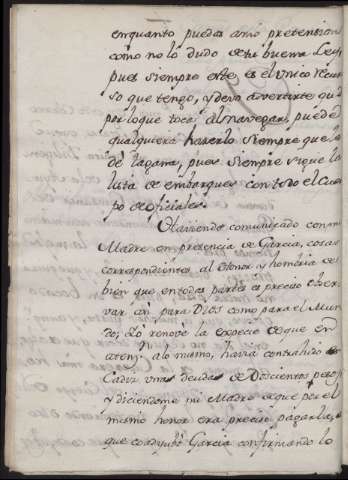 enquanto puedas a mi pretension
como no lo dudo de tu buena Ley
pues siempre este, es el unico recur
so que tengo, y devo advertirte, que
por lo que toca al navegar, puede
qualquiera hacerlo siempre que le
dé la gana, pues siempre sigue la
lista de embarques con todo el Cuer
po de oficiales.
Haviendo comunicado con mi
Madre en presencia de Garcia, cosas
correspondientes al Honor y hombria de
bien que en todas partes es preciso obser
var asi para Dios como para el Mun
do; Lo renové la especie de que en
atenzn. a lo mismo, havia contrahido en
Cadiz unas deudas de Doscientos pesos
y diciendome mi Madre de que por el
mismo honor era preciso pagarlas,
que coadyubó Garcia confirmando lo